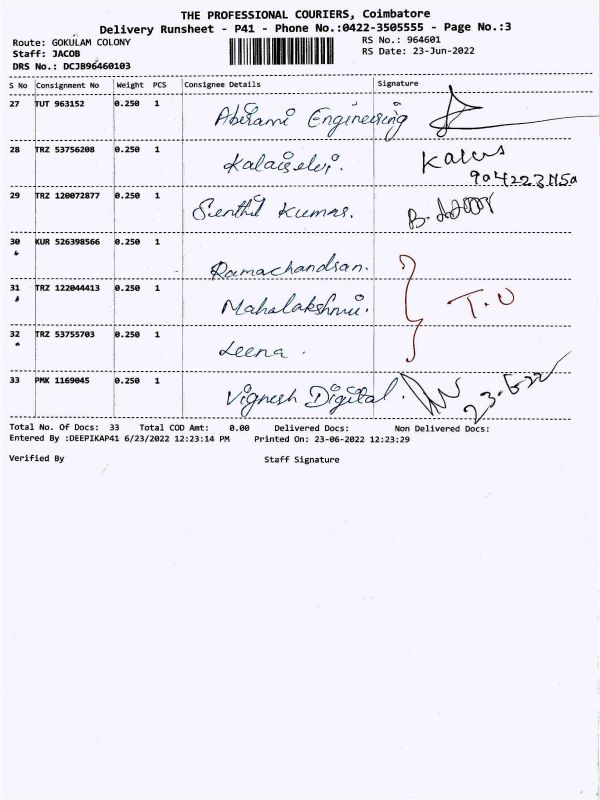 THE PROFESSIONAL COURIERS, Coimbatore
Delivery Runsheet - P41 - Phone No.:0422-3505555 - Page No.:3
Route: GOKULAM COLONY RS No.: 964601
Staff: JACOB RS Date: 23-Jun-2022
DRS No.: DCJB96460103
S No Consignment No Weight PCS Consignee Details Signature
27 TUT 963152 0.250 1 Abirami Engineering
28 TRZ 53756208 0.250 1 Kalaiselvi.
29 TRZ 120072877 0.250 1 Senthil Kumar. B.
30 KUR 526398566 0.250 1 Ramachandran.
31 TRZ 122044413 0.250 1 Mahalakshmi. T.U
32 TRZ 53755703 0.250 1 Leena.
33 PMK 1169045 0.250 1 Vignesh Digital. 23.6.22
Total No. Of Docs: 33 Total COD Amt: 0.00 Delivered Docs: Non Delivered Docs:
Entered By :DEEPIKAP41 6/23/2022 12:23:14 PM Printed On: 23-06-2022 12:23:29
Verified By Staff Signature